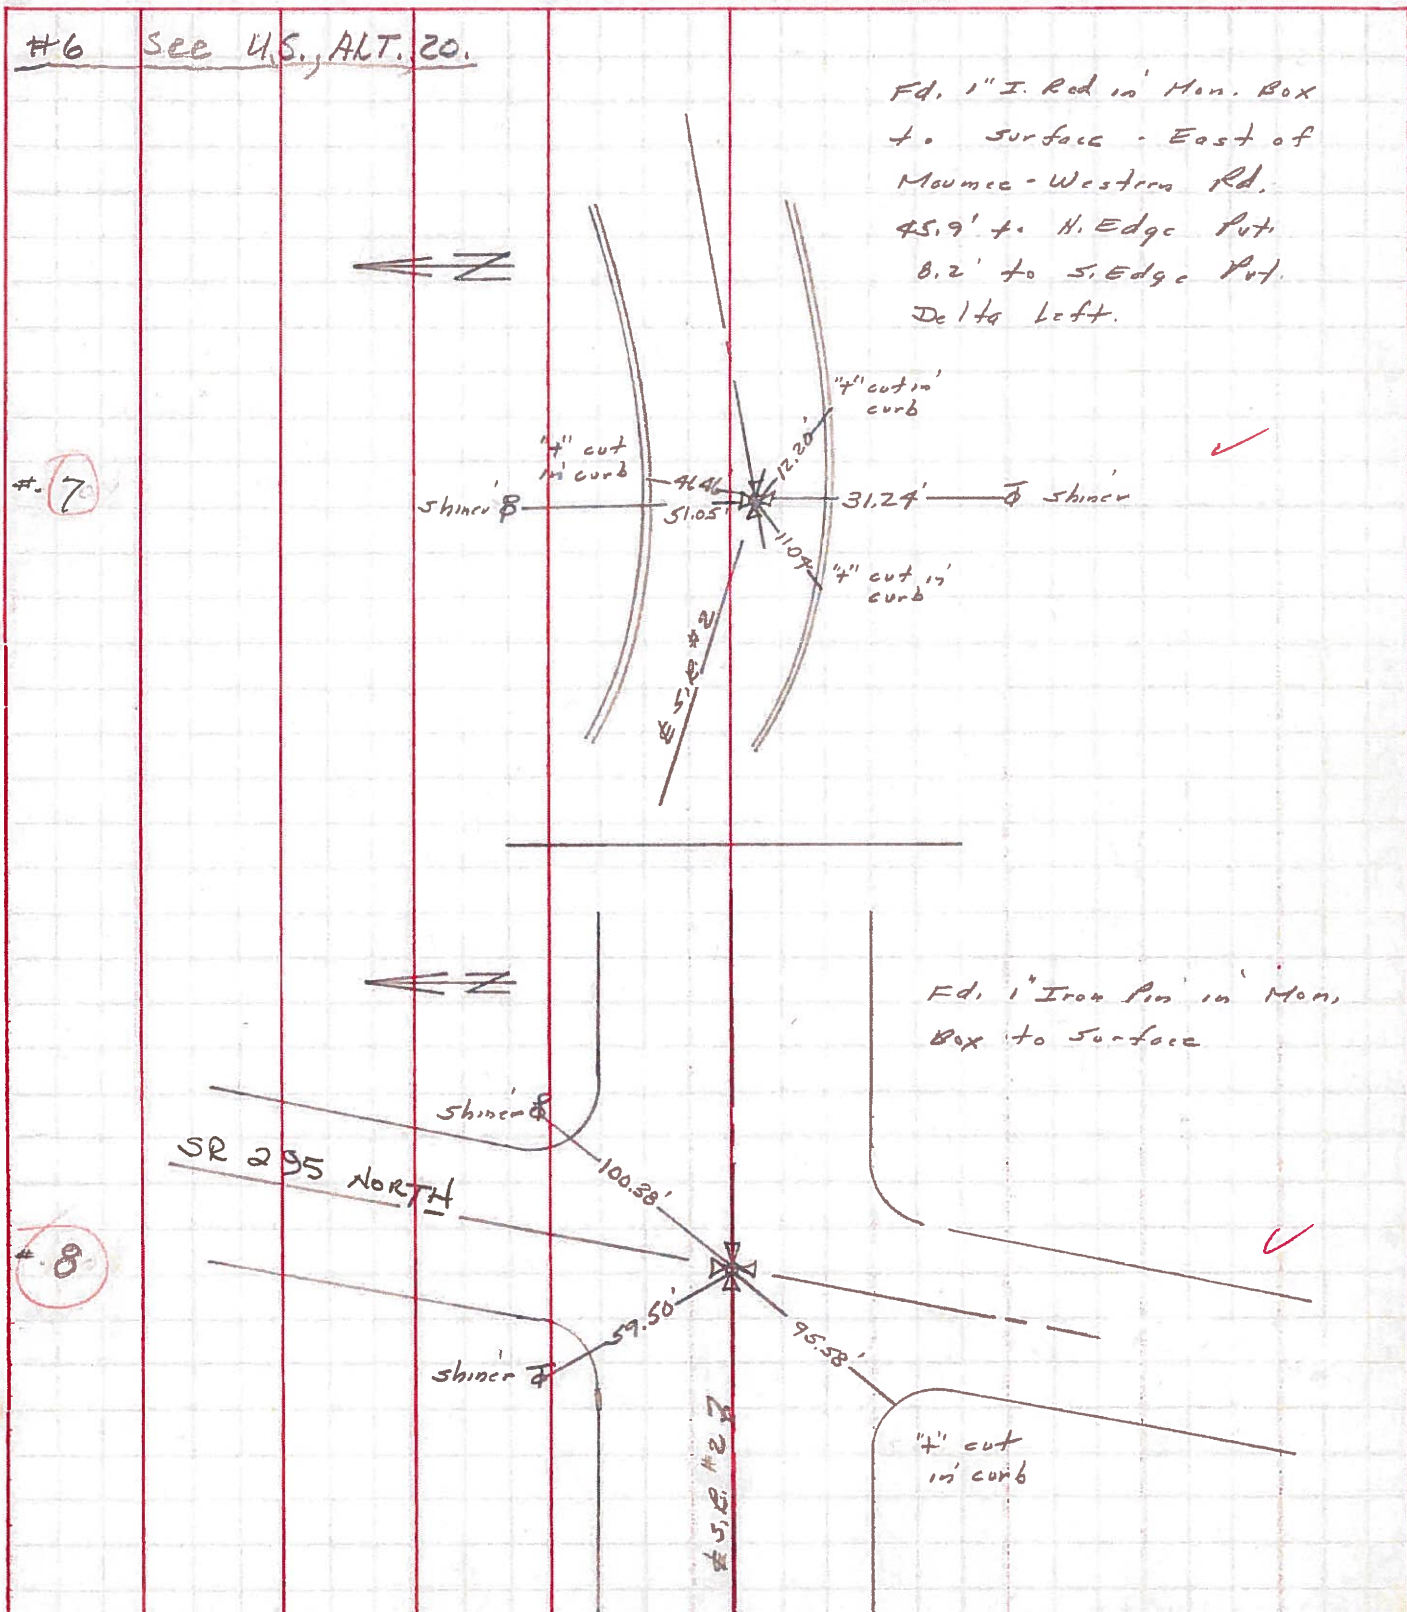 #6 See U.S., ALT. 20.
Fd. 1" I. Rod in Mon. Box
to surface - East of
Maumee - Western Rd.
45.9' to N. Edge Pvt.
8.2' to S. Edge Pvt.
Delta Left.
N
"+" cut in
curb
"+" cut
in curb
12.20'
#. 7
shiner
46.46
51.05'
31.24'
shiner
11.04
"+" cut in
curb
℄ S.R. #2
N
Fd. 1" Iron Pin in Mon.
Box to Surface
shiner
100.38'
SR 295 NORTH
#. 8
59.50'
95.58'
shiner
"+" cut
in curb
℄ S.R. #2